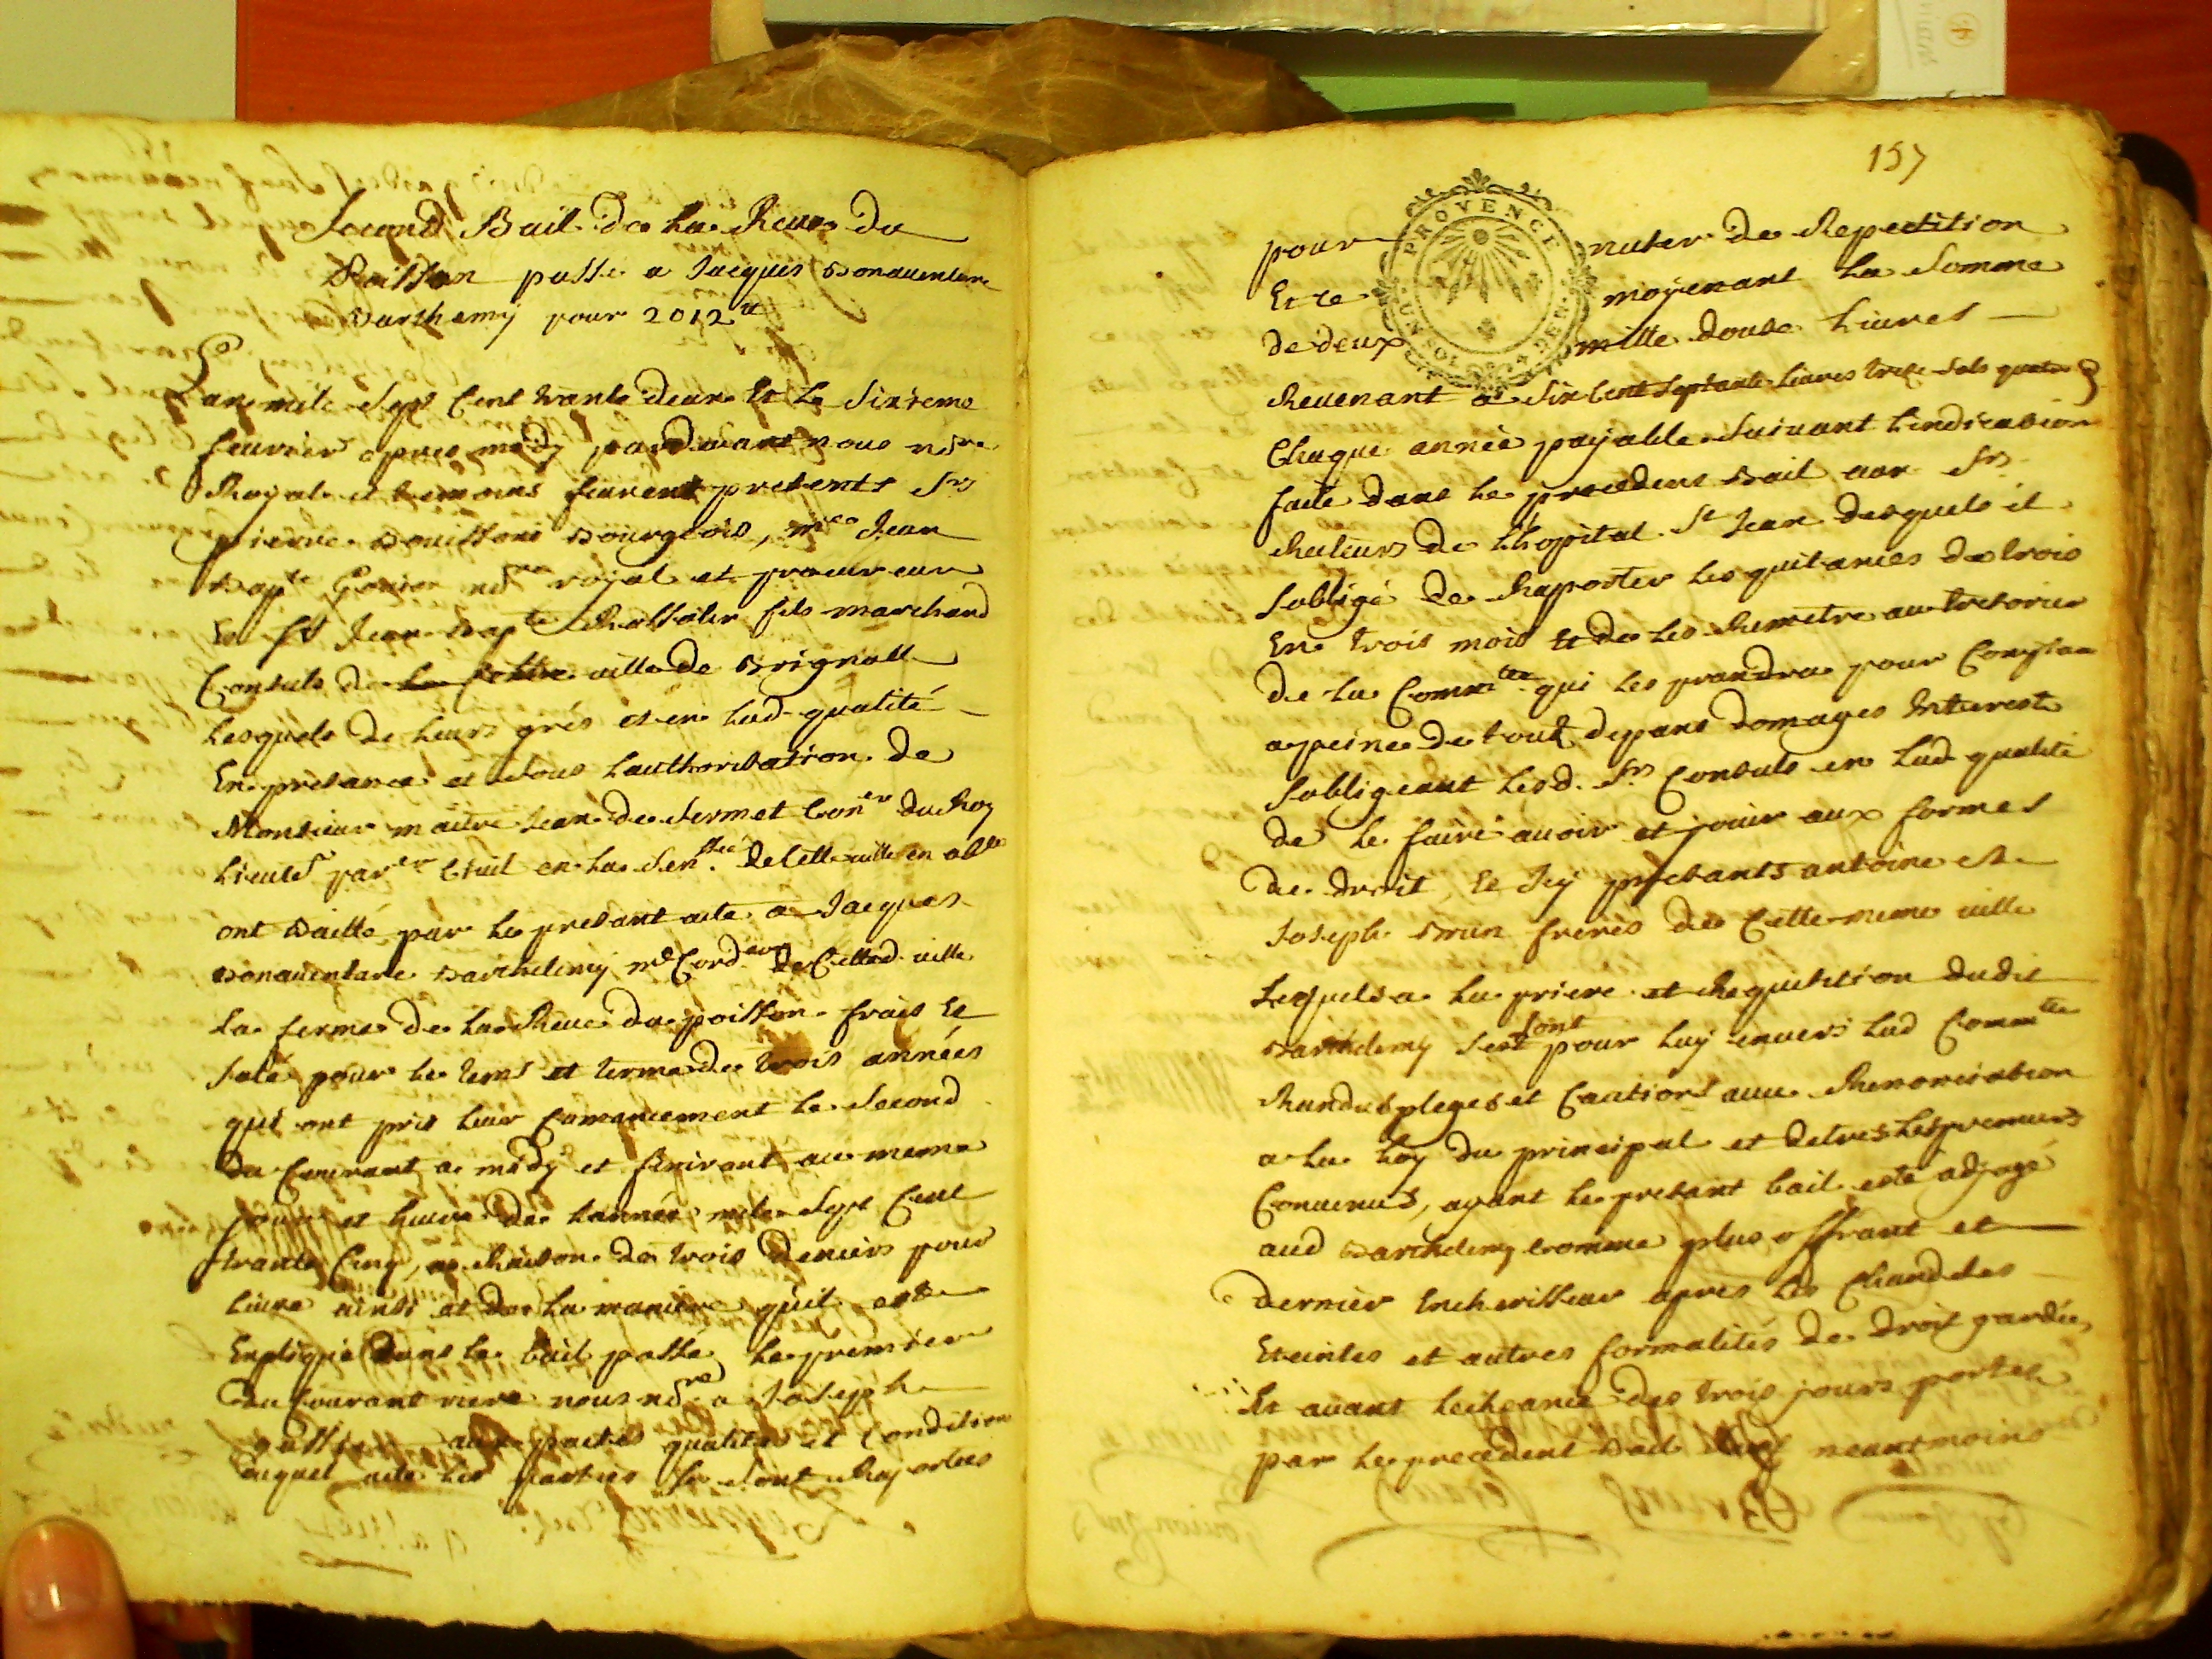 Second Bail de la Reve du
Poisson passé a Jacques Bonaventure
Barthemy pour 2012 ᵗᵗ
Lan mil sept cent trante deux et le sixieme
feuvrier apres midy pardavant nous noʳᵉ
Royal et temoins feurent presents Sʳˢ
pierre Bouissoni Bourgeois, mᵉ Jean
Bapᵗᵉ Goujon noʳᵉ royal et procureur
Et Sʳ Jean Bapᵗᵉ fils marchand
Consuls de ville de Brignolle
Lesquels de leurs grés et en lad. qualité
En presance et sous lauthorisation de
Monsieur maitre Jean de Sermet Conᵉʳ du Roy
Lieuteⁿᵗ parᵉʳ Civil en la Senᵉˢˢᵉᵉ de Cette ville en absᵉ
ont Baillé par le presant acte a Jacques
Bonaventure Barthelemy mᵉ Cordᵉʳ de Cetted. ville
La ferme de la Reve du poisson frais et
Salé pour le tems et terme de trois années
qui ont pris leur Comancement le Second
du Courant a midy et finiront au meme
jour et heure de lannée mil sept Cent
trante Cinq, a Raison de trois deniers pour
Livre ainsi et de la maniere quil est
Expliqué dans le bail passé le premier
du Courant riere nous noʳᵉ a Joseph
aux pactes qualités et condition
auquel acte les parties se sont Raportées
157
PROVENCE
UN SOL 4 DEN.
pour nuter de Repectition
Et ce moyenant la Somme
de deux mille douse Livres
Revenant a Six Cent Septante livres treze sols quatre d
Chaque année payable suivant lindication
faite dans le precedens Bail aux Sʳˢ
Recteurs de Lhopital Sᵗ Jean desquels il
Sobligé de Raporter les quitances de trois
En trois mois Et de les Remetre au tresorier
de la Commᵗᵉᵉ qui les prandra pour Comptan
a peine de tout depans domages Interests
Sobligeant lesd. Sʳˢ Consuls en lad qualité
de le faire avoir et jouir aux formes
de droit, Et Icy presants antoine et
Joseph Brun freres de Cette meme ville
Lesquels a la priere et Requisition dudit
Barthelemy se sont pour luy envers lad Commᵗᵉᵉ
Randus pleges et Cautions avec Renonciation
a la Loy du principal et detres les premiers
Convenus, ayant le presant bail esté adjugé
aud Barthelemy comme plus offrant et
dernier Encherisseur apres les Chandeles
Eteintes et autres formalités de droit gardées
Et avant lecheance des trois jours portes
par le precedent Bail sauf neantmoins